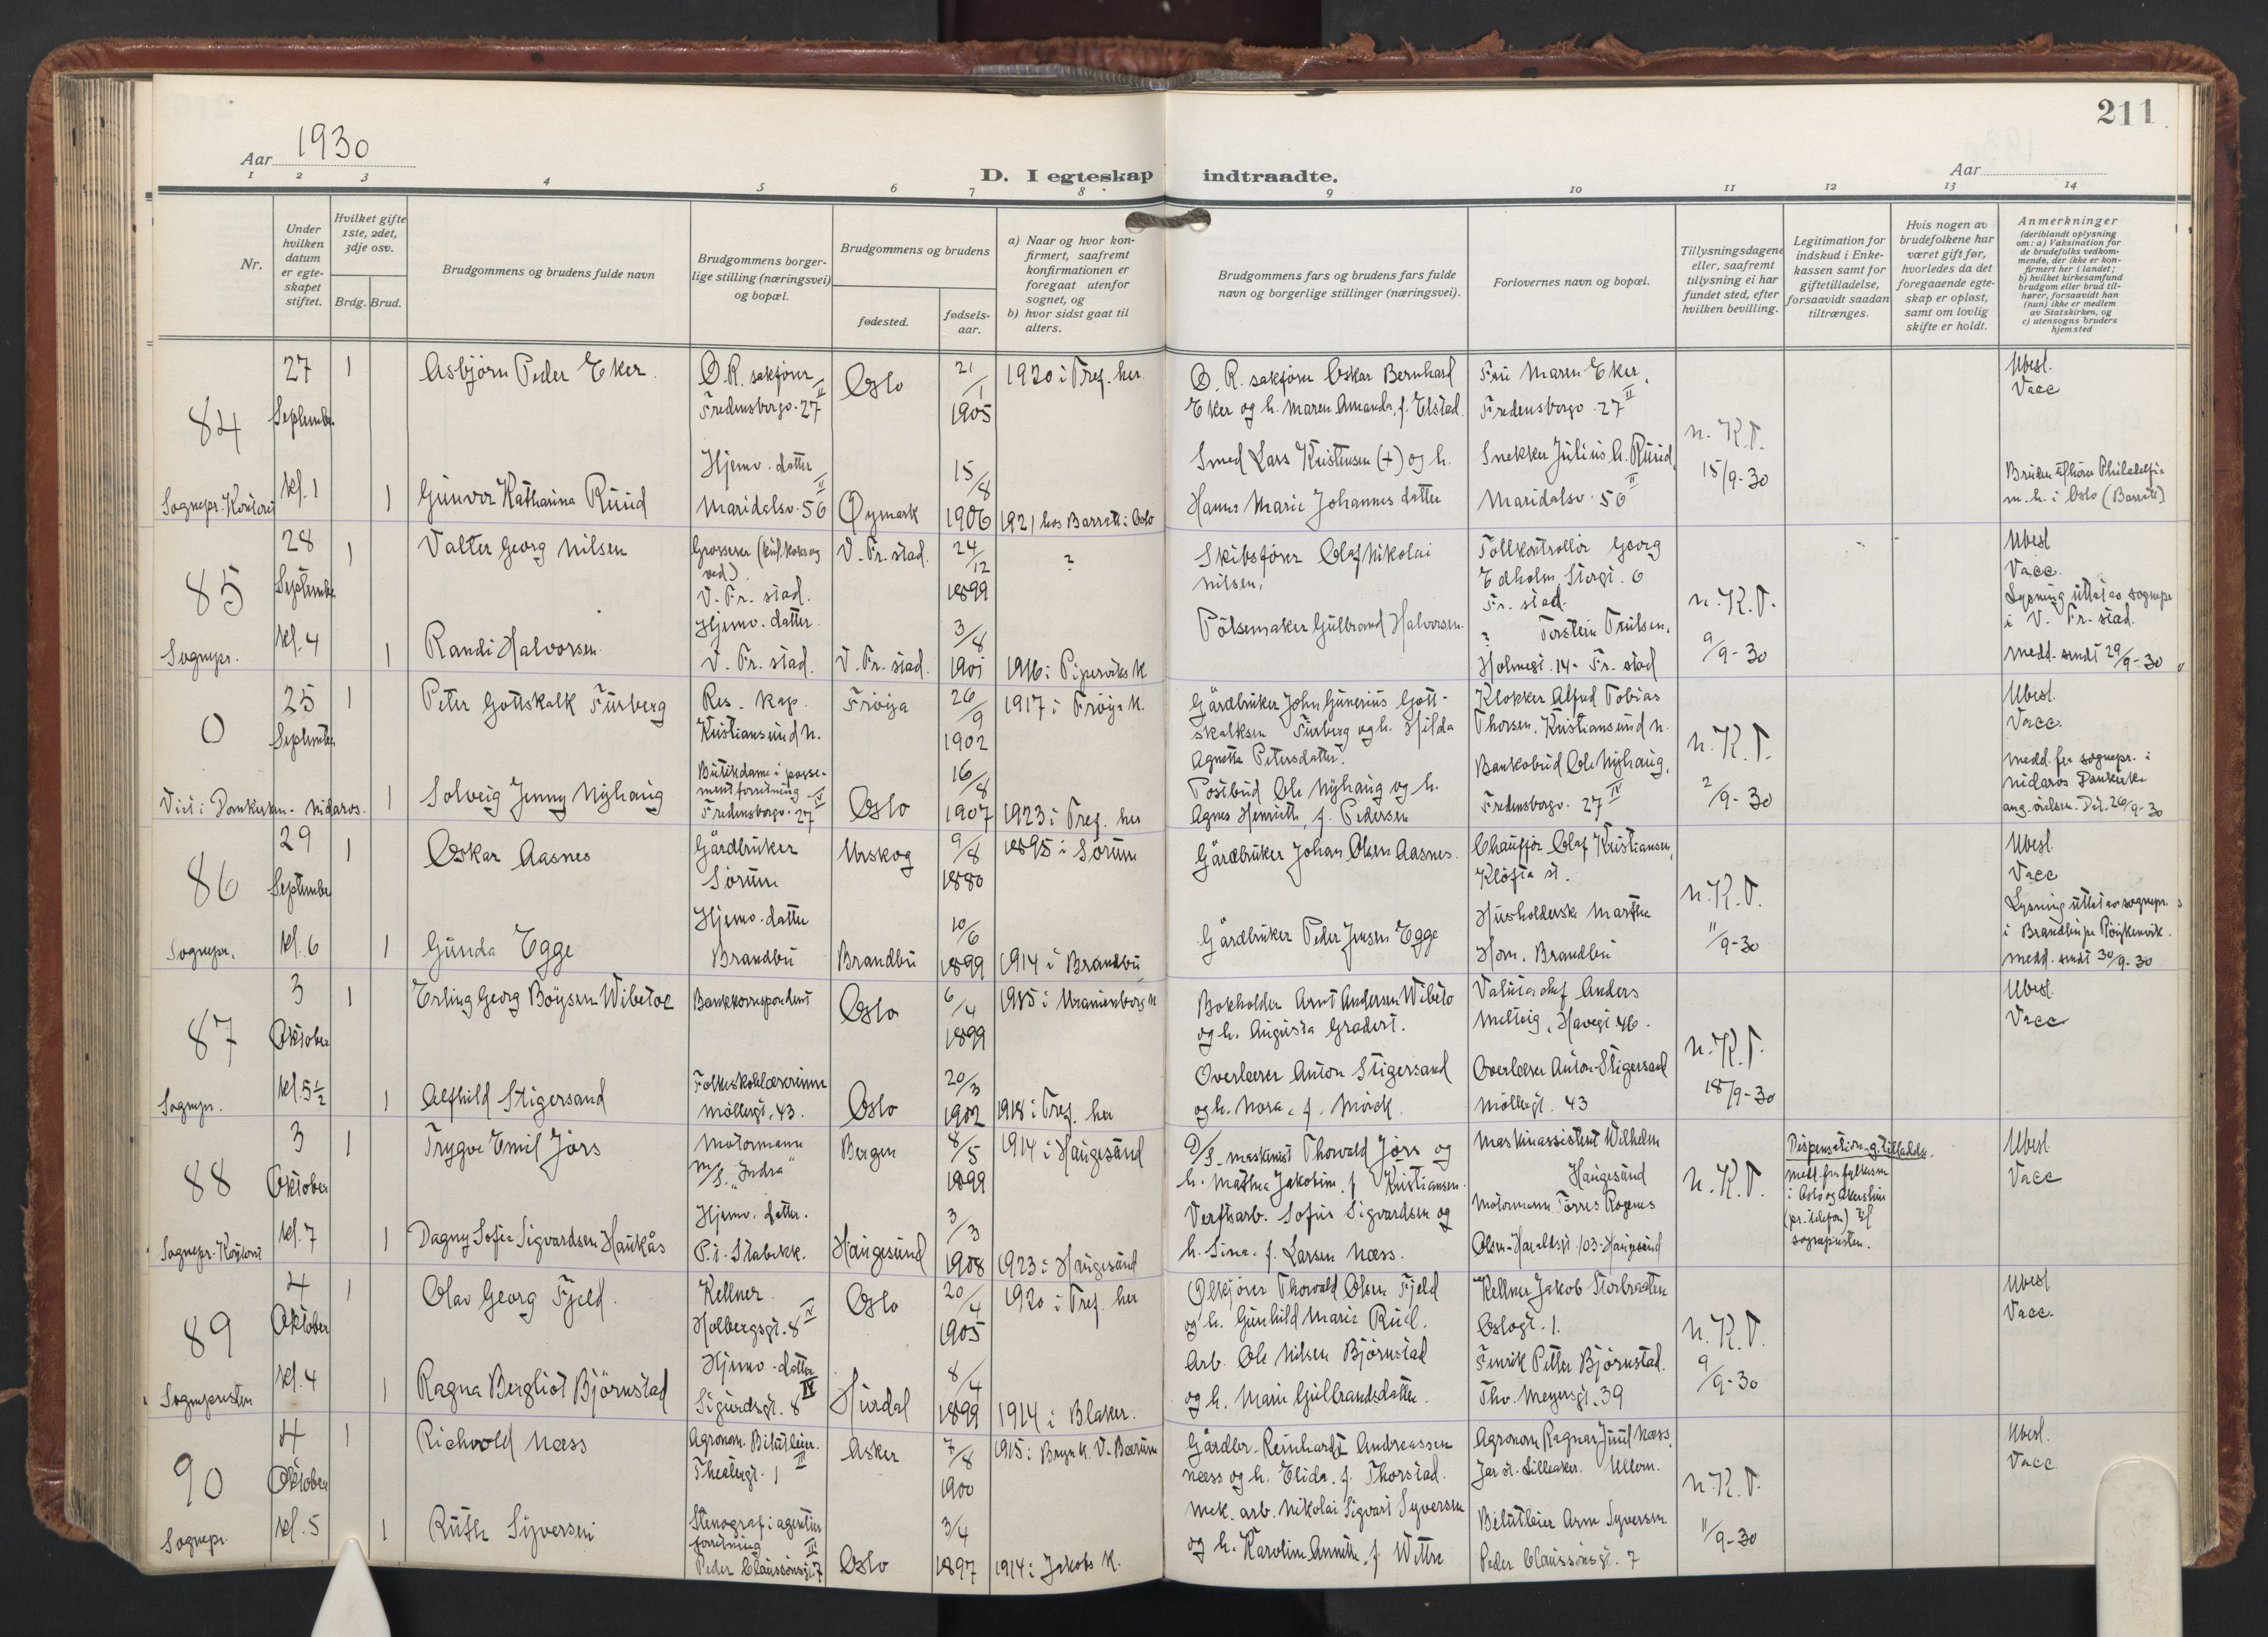 211
Aar 1930
D. I egteskap indtraadte.
Aar
1 2 3 4 5 6 7 8 9 10 11 12 13 14
Nr.
Under hvilken datum er egte-skapet stiftet.
Hvilket gifte 1ste, 2det, 3dje osv.
Brdg. Brud.
Brudgommens og brudens fulde navn
Brudgommens borger-lige stilling (næringsvei) og bopæl.
Brudgommens og brudens
fødested.
fødsels-aar.
a) Naar og hvor kon-firmert, saafremt konfirmationen er foregaat utenfor sognet, og
b) hvor sidst gaat til alters.
Brudgommens fars og brudens fars fulde navn og borgerlige stillinger (næringsvei).
Forlovernes navn og bopæl.
Tillysningsdagene eller, saafremt tillysning ei har fundet sted, efter hvilken bevilling.
Legitimation for indskud i Enke-kassen samt for giftetilladelse, forsaavidt saadan tiltrænges.
Hvis nogen av brudefolkene har været gift før, hvorledes da det foregaaende egte-skap er opløst, samt om lovlig skifte er holdt.
Anmerkninger
(deriblandt oplysning om: a) Vaksination for de brudefolks vedkom-mende, der ikke er kon-firmert her i landet; b) hvilket kirkesamfund brudgom eller brud til-hører, forsaavidt han (hun) ikke er medlem av Statskirken, og c) utensogns bruders hjemsted
84
27 September kl. 1
Sognepr. Kontoret
1 Asbjörn Peder Eker.
O.R. sakförer Fredensborgv. 27 II
Oslo
21/1 1905
1920 i Tref. her.
O.R. sakförer Oskar Bernhard Eker og h. Maren Amanda, f. Elstad.
Fru Maren Eker, Fredensborgv. 27 II
n. K.T. 15/9-30
Ubesl. Vacc
1 Gunvor Katharina Ruud
Hjemv. datter Maridalsv. 56 II
Öymark
15/8 1906
1921 hos Barratt i Oslo
Smed Lars Kristensen (+) og h. Hanna Marie Johannesdatter
Snekker Julius A. Ruud, Maridalsv. 56 II
Bruden tilhörer Philadelfia m.h. i Oslo (Barratt)
85
28 September kl. 4
Sognepr.
1 Valter Georg Nilsen
Grosserer (kul, koks og ved). V. Fr. stad.
V. Fr. stad.
24/12 1899
?
Skibsförer Olaf Nikolai Nilsen.
Tollkontrollör Georg Edholm, Storgt. 6 Fr. stad.
n. K.T. 9/9-30
Ubesl Vacc.
Lysning uttatt av sognepr. i V. Fr. stad.
medd. sendt 29/9-30
1 Randi Halvorsen
Hjemv. datter. V. Fr. stad.
V. Fr. stad.
3/8 1901
1916 i Piperviks K
Pölsemaker Gulbrand Halvorsen.
? Torstein Trulsen, Holmegt. 14 - Fr. stad
0
25 September
Viet i Domkirken - Nidaros.
1 Peter Gottskalk Furberg
Res. Kap. Kristiansund N.
Fröya
26/9 1902
1917 i Fröya K.
Gårdbruker John Gunerius Gott-skalksen Furberg og h. Hilda Agnette Petersdatter.
Klokker Alfred Tobias Thorsen. Kristiansund N.
n. K.T. 2/9-30
Ubesl. Vacc.
medd. fra sognepr. i Nidaros Domkirke ang. vielsen. Dat. 26/9-30
1 Solveig Jenny Nyhaug
Butikdame i posse-mentforretning Fredensborgv. 27 IV
Oslo
16/8 1907
1923 i Tref. her
Postbud Ole Nyhaug og h. Agnes Henriette, f. Pedersen
Bankobud Ole Nyhaug, Fredensborgv. 27 IV
86
29 September kl. 6
Sognepr.
1 Oskar Aasnes
Gårdbruker Sörum
Urskog
9/8 1880
1895 i Sörum
Gårdbruker Johan Olsen Aasnes.
Chaufför Olaf Kristiansen, Klöfta st.
n. K.T. 11/9-30
Ubesl. Vacc
Lysning uttatt av sognepr. i Brandbu pr Röykenvik.
medd. sendt 30/9-30
1 Gunda Egge
Hjemv. datter Brandbu
Brandbu
10/6 1899
1914 i Brandbu
Gårdbruker Peder Jensen Egge
Husholderske Marthe Horn. Brandbu
87
3 Oktober kl. 5 1/2
Sognepr.
1 Erling Georg Böysen Wibetoe
Bankkorrespondent
Oslo
6/4 1899
1915 i Uranienborg K
Bokholder Arnt Andersen Wibeto og h. Augusta Gradert.
Valutachef Anders Melteig, Havegt. 46.
n. K.T. 18/9-30
Ubesl. Vacc
1 Alfhild Stigersand
Folkeskolelærerinne Möllergt. 43.
Oslo
20/3 1902
1918 i Tref. her
Overlærer Anton Stigersand og h. Nora, f. Mörck.
Overlærer Anton Stigersand Möllergt. 43
88
3 Oktober kl. 7
Sognepr. Kontoret
1 Trygve Emil Jörs
Motormann m/s. „Indra"
Bergen
8/5 1899
1914 i Haugesund
D/S-maskinist Thorvald Jörs og h. Mathea Jakobine, f. Kristiansen.
Maskinassistent Wilhelm Haugesund
n. K.T.
Dispensation g. tilladelse medd. fra fylkesm. i Oslo og Akershus (pr. telefon) til sognepresten.
Ubesl Vacc
1 Dagny Sofie Sigvardsen Haukås
Hjemv. datter. P.t. Stabekk.
Haugesund
3/3 1908
1923 i Haugesund
Verftsarb. Sofus Sigvardsen og h. Sina, f. Larsen Næss.
Motormann Törres Rogenes Olsen - Haraldsgt. 103 - Haugesund
89
4 Oktober kl. 4
Sognepresten
1 Olav Georg Fjeld.
Kellner. Holbergsgt. 8 IV
Oslo
20/4 1905
1920 i Tref. her
Ölkjörer Thorvald Olsen Fjeld og h. Gunhild Marie Rud.
Kellner Jakob Storbraaten Oslogt. 1.
n. K.T. 9/9-30
Ubesl Vacc.
1 Ragna Bergliot Björnstad
Hjemv. datter Sigurdsgt. 8 IV
Hurdal
8/4 1899
1914 i Blaker.
Arb. Ole Nilsen Björnstad og h. Marie Gulbrandsdatter.
Fenrik Petter Björnstad. Thv. Meyersgt. 39
90
4 Oktober kl. 5
Sognepr.
1 Richvold Næss
Agronom. Bilutleier. Theatergt. 1 III
Asker
7/8 1900
1915 i Bryn K. V. Bærum
Gårdbr. Reinhardt Andreassen Næss og h. Elida, f. Thorstad.
Agronom Ragnar Juul Næss, Jar st. Lilleaker. Ullern.
n. K.T. 11/9-30
Ubesl. Vacc
1 Ruth Syversen
Stenograf i agentur forretning Peder Claussönsgt. 7 III
Oslo
3/4 1897
1914 i Jakobs K.
Mek. arb. Nikolai Sigvart Syversen og h. Karoline Annette, f. Wettre
Bilutleier Arne Syversen Peder Claussönsgt. 7